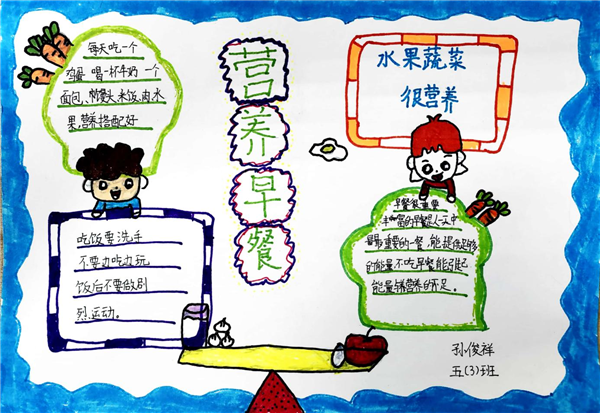 每天吃一个
鸡蛋 喝一杯牛奶 一个
面包、馒头、米饭、肉、水
果,营养搭配好
营养早餐
水果蔬菜
很营养
吃饭要洗手
不要边吃边玩
饭后不要做剧
烈运动。
早餐很重要
丰富的早餐是人一天中
最重要的一餐,能提供足够
的能量,不吃早餐能引起
能量和营养的不足。
孙俊祥
五(3)班